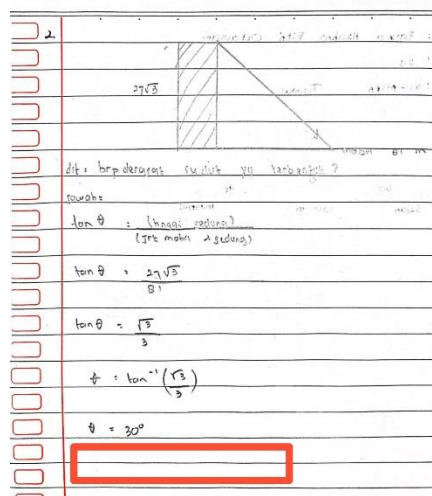 2
27√3
mobil 81 m
dit : brp derajat sudut yg terbentuk ?
Jawab :
tan θ : (tinggi gedung)
(Jrk mobil & gedung)
tan θ = 27√3
81
tan θ = √3
3
θ = tan⁻¹ (√3
3)
θ = 30°